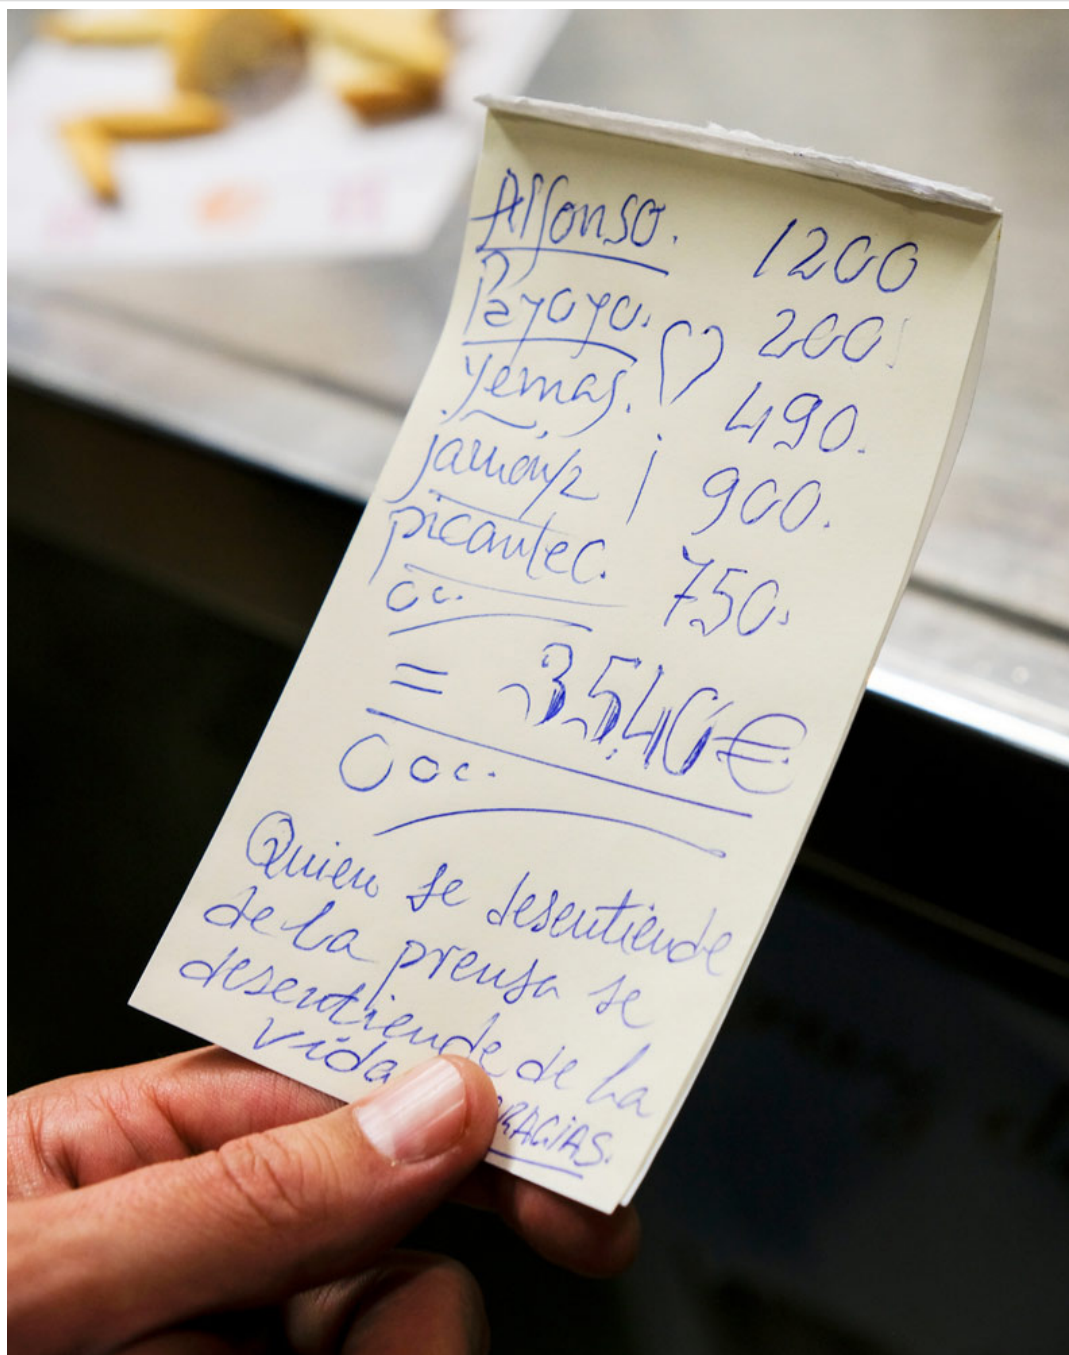 Alfonso. 1200
Payoyo. 200
yemas. 490.
jamón 1/2 900.
picantec. 750.
= 3540€
Quien se desentiende
de la prensa se
desentiende de la
vida
GRACIAS.